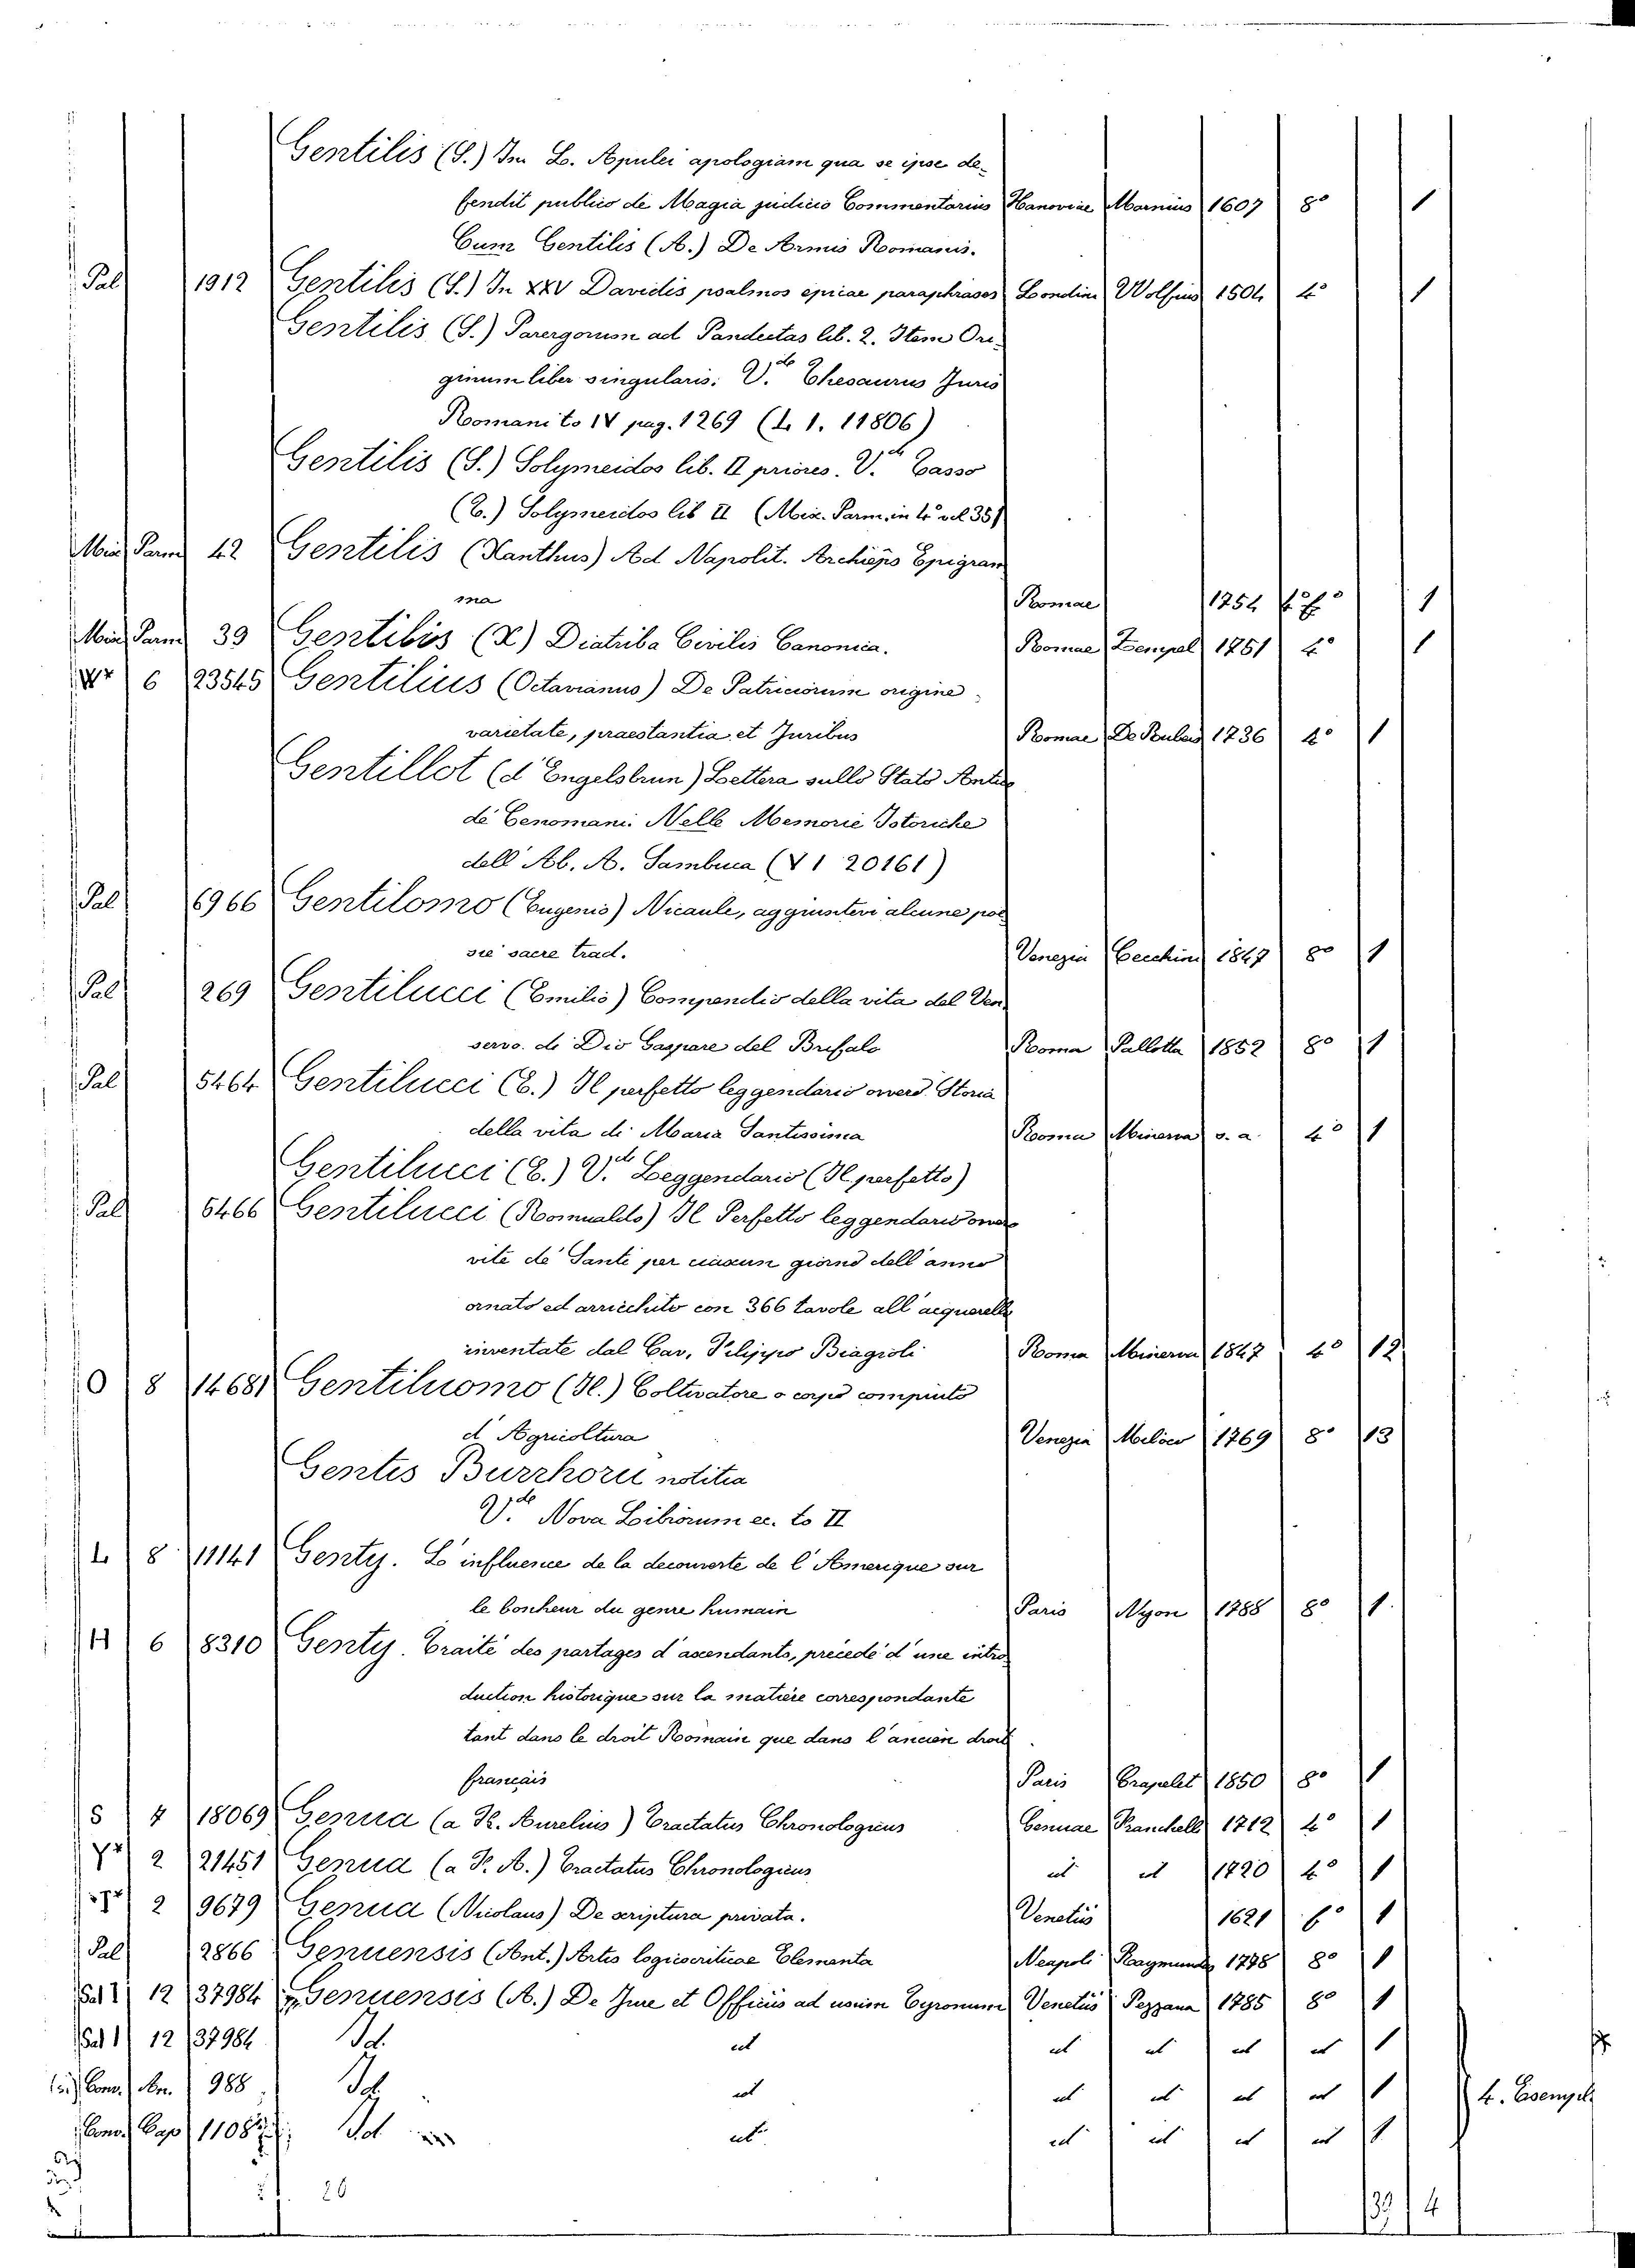 Gentilis (S.) In L. Apulei apologiam qua se ipse de-
fendit publico de Magia judicio Commentarius Hanoviae Marnius 1607 8° 1
Cum Gentilis (A.) De Armis Romanis.
Pal 1912 Gentilis (S.) In XXV Davidis psalmos epicae paraphrases Londini Wolfius 1504 4° 1
Gentilis (S.) Parergorum ad Pandectas lib. 2. Item Ori-
ginum liber singularis: V.de Thesaurus Juris
Romani to IV pag. 1269 (L 1. 11806)
Gentilis (S.) Solymeidos lib. II priores. V.de Tasso
(T.) Solymeidos lib II (Mis. Parm. in 4° vol 35)
Mis Parm 42 Gentilis (Xanthus) Ad Napolit. Archieps Epigram
ma Romae 1754 1
Mis Parm 39 Gentilis (X) Diatriba Civilis Canonica. Romae Zempel 1751 4° 1
6 23545 Gentilius (Octavianus) De Patriciorum origine,
varietate, praestantia et Juribus Romae De Rubeis 1736 4° 1
Gentillot (d'Engelsbrun) Lettera sullo Stato Antico
de' Cenomani. Nelle Memorie Istoriche
dell' Ab. A. Sambuca (V 1 20161)
Pal 6966 Gentilomo (Eugenio) Nicaule, aggiuntevi alcune poe
sie sacre trad. Venezia Cecchini 1847 8° 1
Pal 269 Gentilucci (Emilio) Compendio della vita del Ven.
servo. di Dio Gaspare del Bufalo Roma Pallotta 1852 8° 1
Pal 5464 Gentilucci (E.) Il perfetto leggendario overo. Storia
della vita di Maria Santissima Roma Minerva s. a. 4° 1
Gentilucci (E.) V.de Leggendario (Il perfetto)
Pal 5466 Gentilucci (Romualdo) Il Perfetto leggendario overo
vite de' Santi per ciascun giorno dell'anno
ornato ed arricchito con 366 tavole all'acquerello
inventate dal Cav. Filippo Biagioli Roma Minerva 1847 4° 12
O 8 14681 Gentiluomo (Il.) Coltivatore o corpo compiuto
d'Agricoltura Venezia Milocco 1769 8° 13
Gentis Burrhorii notitia
V.de Nova Librorum ec. to II
L 8 11141 Genty. L'influence de la decouverte de l'Amerique sur
le bonheur du genre humain Paris Nyon 1788 8° 1
H 6 8310 Genty. Traité des partages d'ascendants, précédé d'une intro
duction historique sur la matière correspondante
tant dans le droit Romain que dans l'ancien droit
français Paris Crapelet 1850 8° 1
S 4 18069 Genua (a P. Aurelius) Tractatus Chronologicus Genuae Franchelli 1712 4° 1
2 21451 Genua (a P. A.) Tractatus Chronologicus ut ut 1720 4° 1
2 9679 Genua (Nicolaus) De scriptura privata. Venetiis 1621 1
Pal 2866 Genuensis (Ant.) Artis logicocriticae Elementa Neapoli Raymundi 1778 8° 1
12 37984 Genuensis (A.) De Jure et Officiis ad usum Tyronum Venetiis Pezzana 1785 8° 1
12 37984 Id. ut ut ut ut ut 1
Com. An. 988 Id. ut ut ut ut ut 1 4. Esempl.
Com. Cap 11087 Id ut ut ut ut ut 1
26
39 4